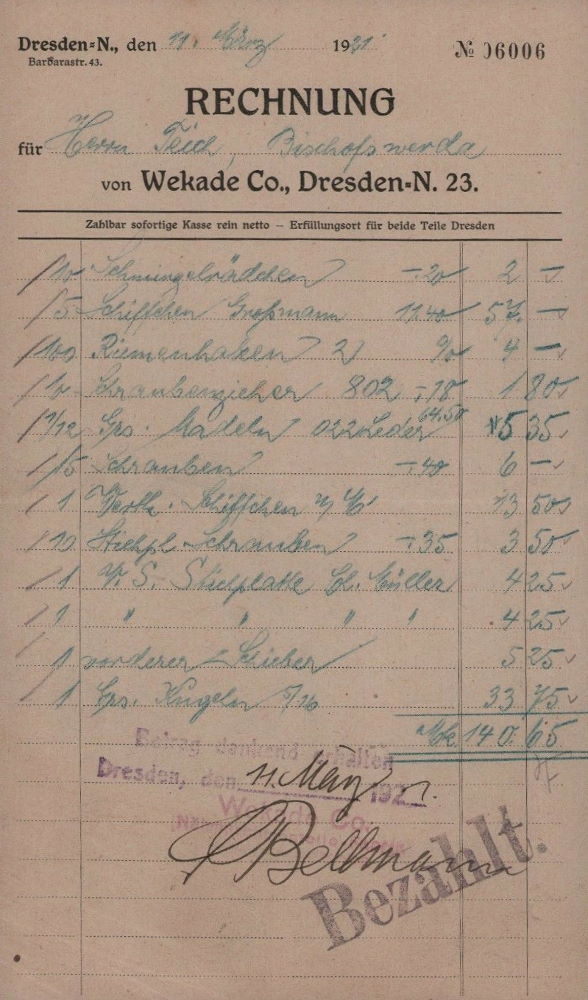 Dresden-N., den 11. März 1921
Barbarastr. 43.
№ 06006
RECHNUNG
für Herrn Teich, Bischofswerda
von Wekade Co., Dresden-N. 23.
Zahlbar sofortige Kasse rein netto – Erfüllungsort für beide Teile Dresden
10 Schmirgelrädchen –.20 2 –
5 Schiffchen Großmann 11.40 57. –
100 Riemenhaken 2) % 4 –
10 Schraubenzieher 802 –.18 1 80
1/12 Grs. Nadeln 022 Leder 64.50 5 35
15 Schrauben –.40 6 –
1 Schiffchen 13 50
10 Stichpl. Schrauben –.35 3 50
1 V. S. Stichplatte Cl. Müller 4 25
1 " " " " 4 25
1 vorderer Schieber 5 25
1 Grs. Kugeln 5/16 33 75
Mk 140. 65
Betrag dankend erhalten
Dresden, den 11. März 1921.
Wekade Co.
Bellmann
Bezahlt.